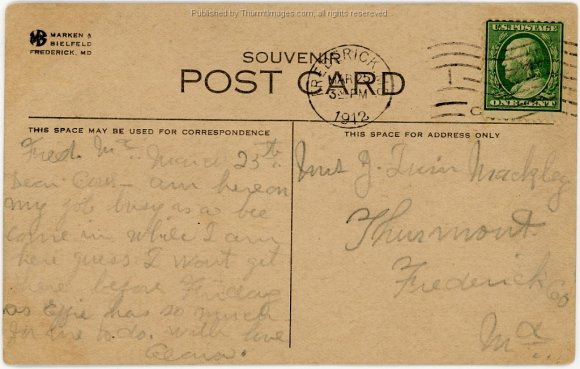 Published by ThurmtImages.com, all rights reserved
MARKEN &
BIELFELD
FREDERICK, MD
SOUVENIR
POST CARD
U.S. POSTAGE
ONE CENT
FREDERICK, MD.
MAR 25
3 PM
1912
THIS SPACE MAY BE USED FOR CORRESPONDENCE
THIS SPACE FOR ADDRESS ONLY
Fred. Md. March 25th
Dear Cous- am here on
my job busy as a bee
come in while I am
here guess I wont get
there before Friday
as Effie has so much
for me to do. with love
Mrs J. Mackley
Thurmont.
Frederick Co
Md